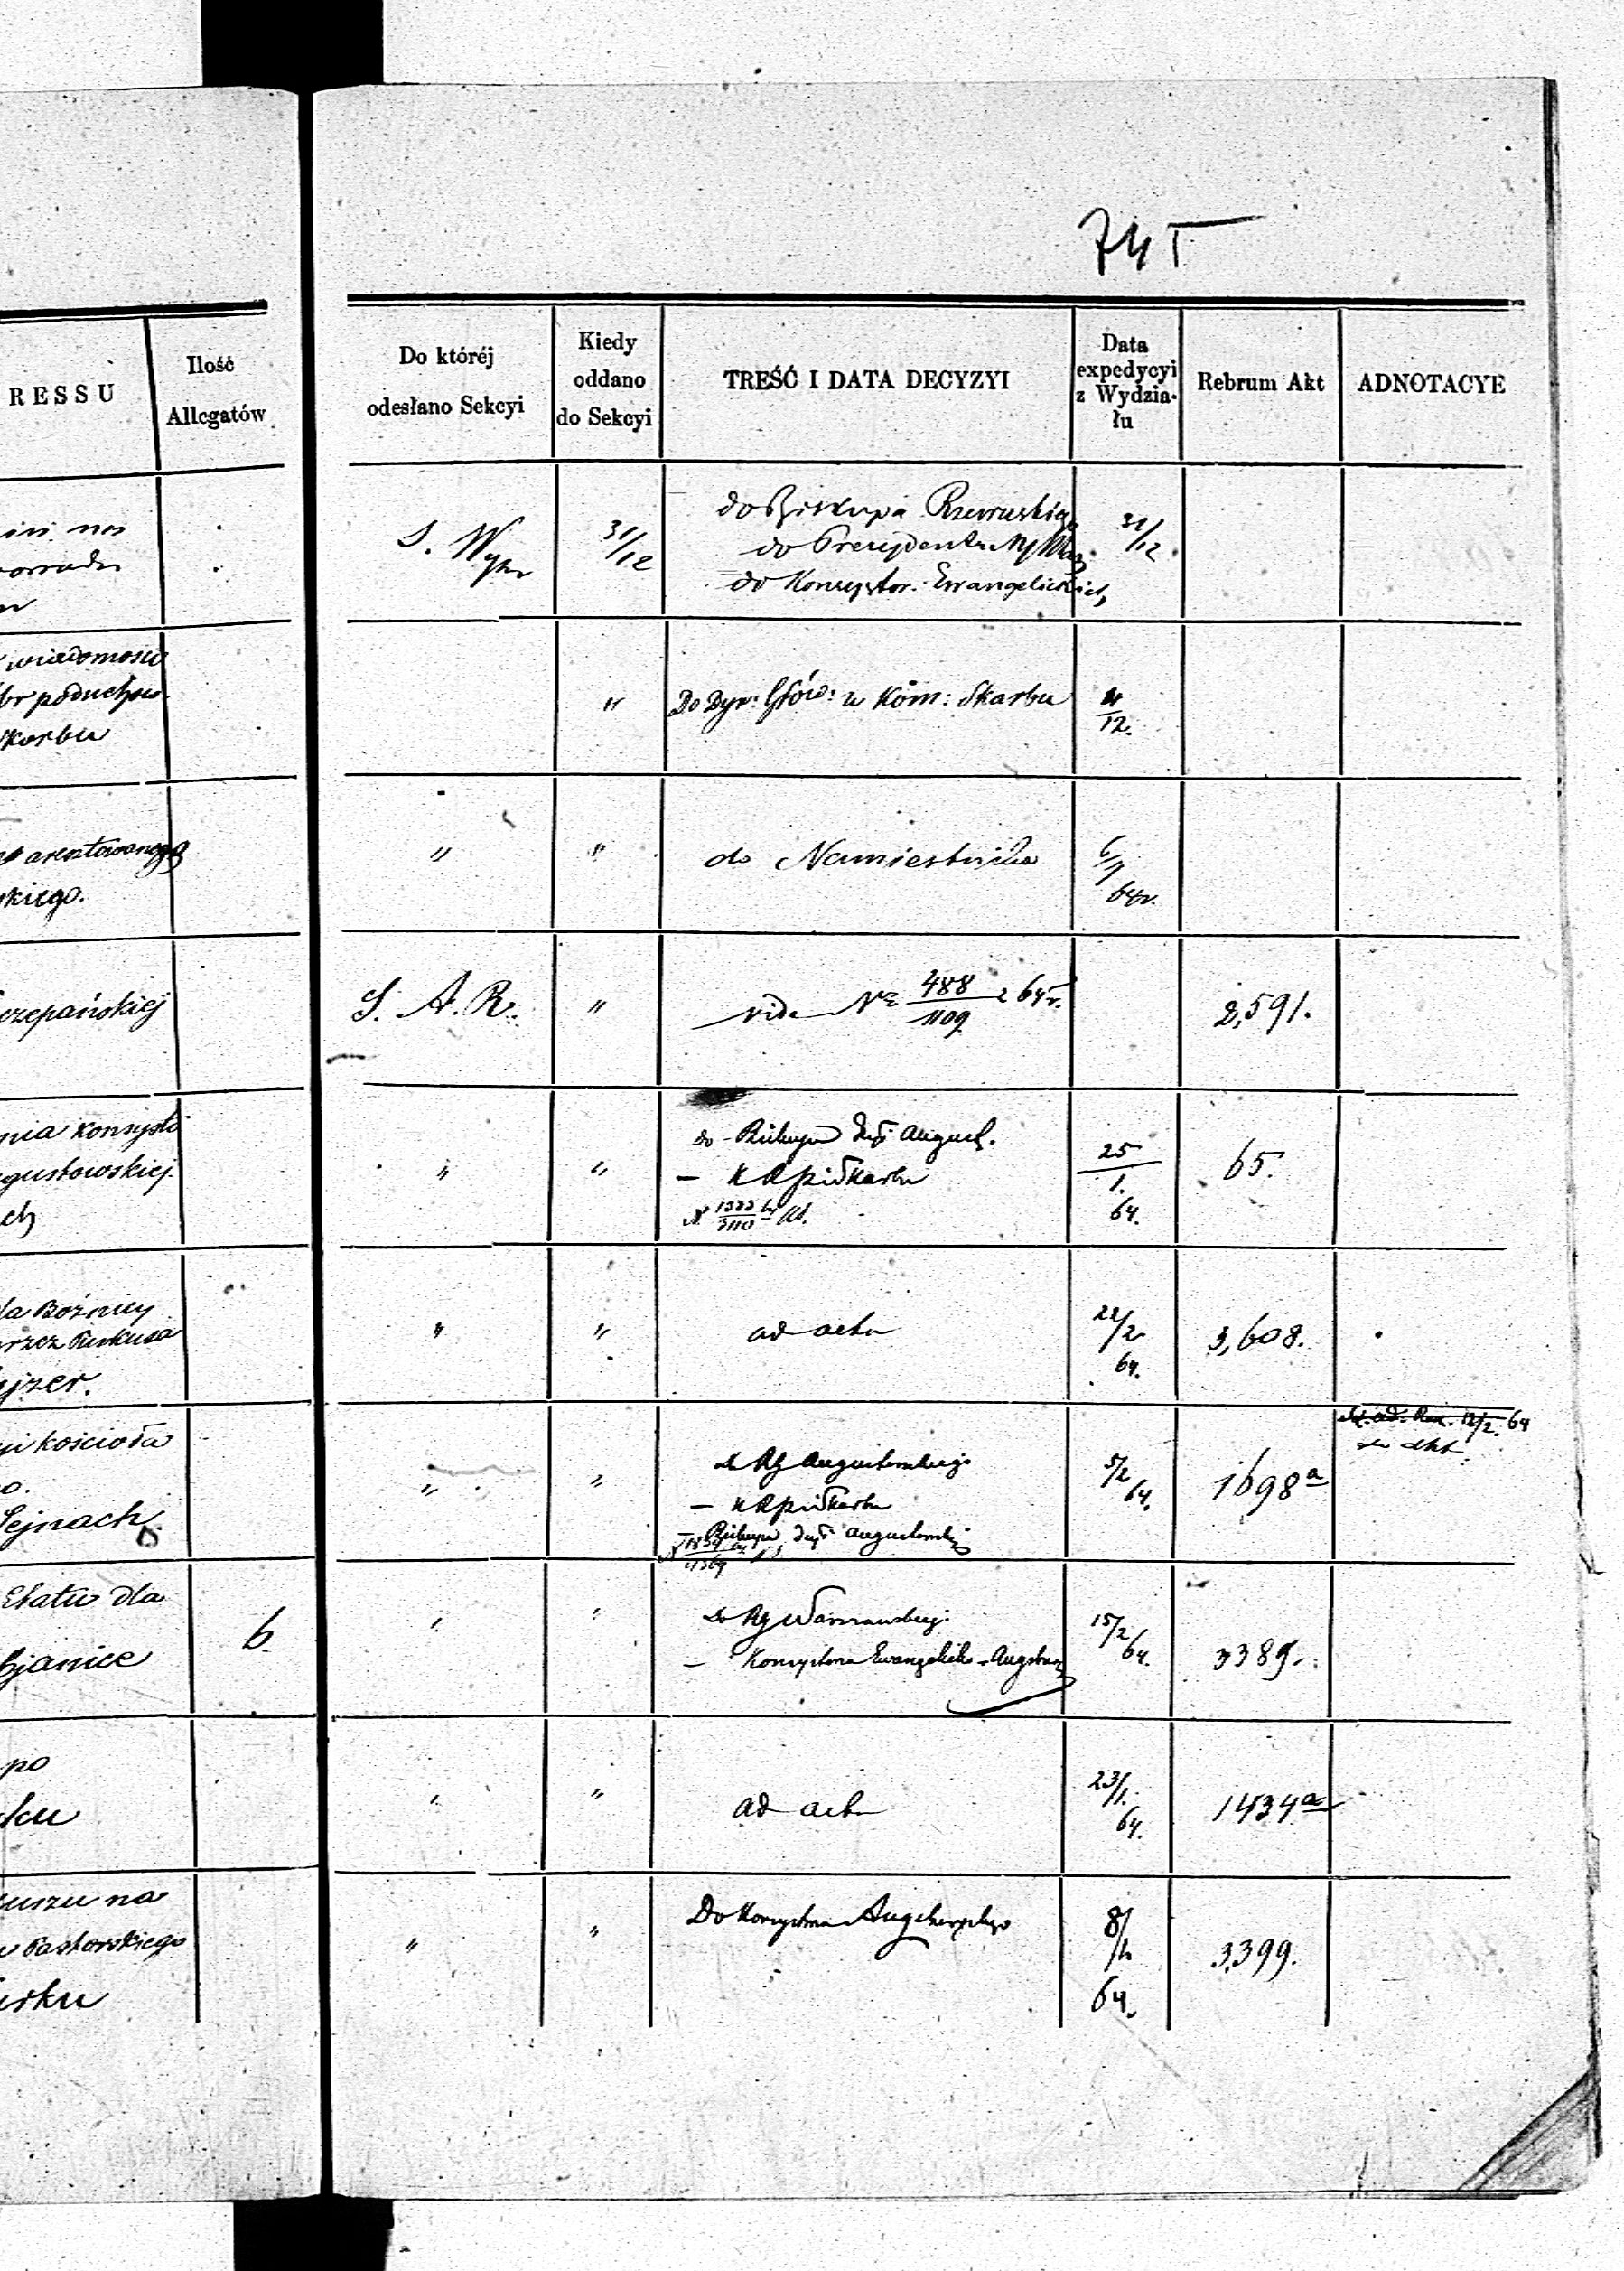 745
RESSU
Ilość
Allegatów
Do któréj
odesłano Sekcyi
Kiedy
oddano
do Sekcyi
TREŚĆ I DATA DECYZYI
Data
expedycyi
z Wydzia-
łu
Rebrum Akt
ADNOTACYE
S. Wyzn
31/12
do Biskupa Rzewuskiego
do Prezydenta M
do Konsystor. Ewangelickich
31/12
wiadomości
Skarbu
"
Do Dyr: Głów: w Kom: Skarbu
12.
aresztowanego
skiego.
"
"
do Namiestnika
64r.
czepańskiej
S. A. R.
"
vide Nr 488/1109 z 64r.
2,591.
nia Konsysto
gustowskiej
ch
"
"
do Biskupa August.
— K R P i Skarbu
25
1.
64.
65.
la Bożnicy
przez
jzer.
"
"
ad acta
22/2
64.
3,608.
yi kościoła
o.
Sejnach
"
"
do RG Augustowskiego
— K R P i Skarbu
Biskupa Augustowski
5/2
64.
1698a
12/2. 64
Etatu dla
bjanice
6
"
"
do RG Warszawskiego
— Konsystorza Ewangelicko-Augsburg
15/2
64.
3389.
po
ku
"
"
ad acta
23/1.
64.
1434a
uszu na
Pastorskiego
urku
"
"
Do Konsystorza Augsburskiego
8/
64.
3,399.